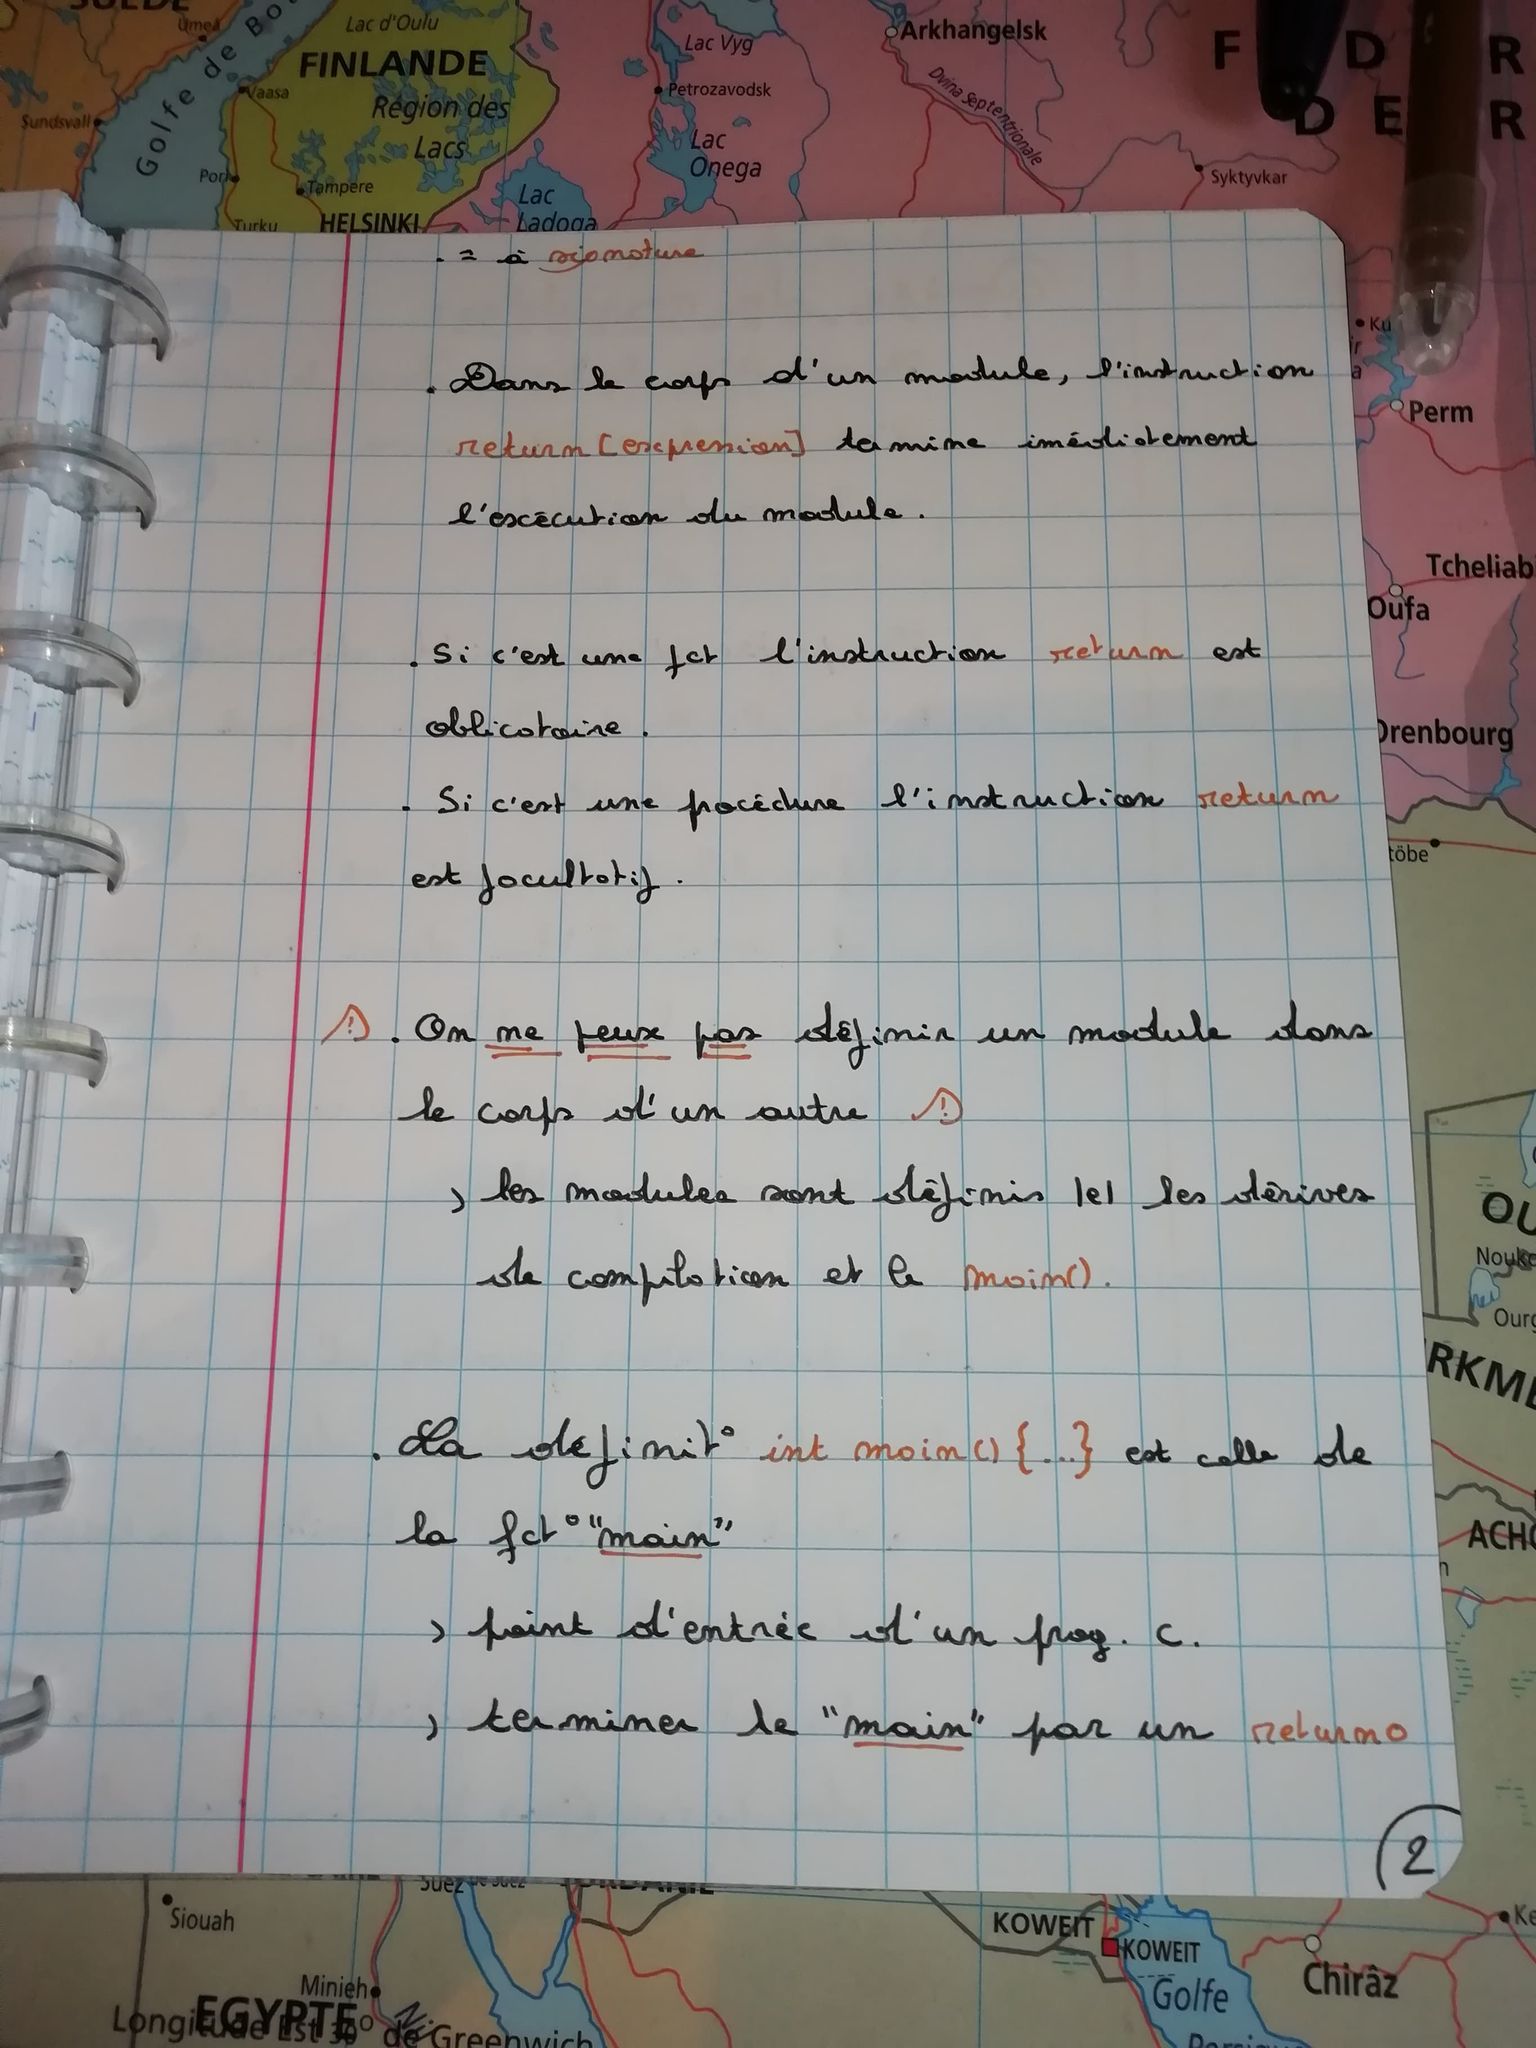 SUÈDE
Umeå
Lac d'Oulu
Golfe de Bo
FINLANDE
Vaasa
Région des
Lacs
Sundsvall
Pori
Tampere
Turku
HELSINKI
Lac
Ladoga
Lac Vyg
Petrozavodsk
Lac
Onega
Arkhangelsk
Dvina Septentrionale
Syktyvkar
F D R
D E R
. = à signature
. Dans le corps d'un module, l'instruction
return [expression] termine imédiatement
l'exécution du module.
. Si c'est une fct l'instruction return est
oblicatoire.
. Si c'est une procédure l'instruction return
est facultatif.
⚠ . On ne peux pas définir un module dans
le corps d'un autre ⚠
> les modules sont définis |e| les dérives
de compilation et le main().
. La définit° int main() {...} est celle de
la fct° "main"
> point d'entrée d'un prog. C.
> terminer le "main" par un return 0
2
Ku
Perm
Tcheliab
Oufa
Orenbourg
töbe
OU
Nouk
Ourg
RKM
ACH
Suez
JORDANIE
Siouah
Minieh
EGYPTE
Longitude Est 30° de Greenwich
KOWEIT
KOWEIT
Golfe
Persique
Chirâz
Ke